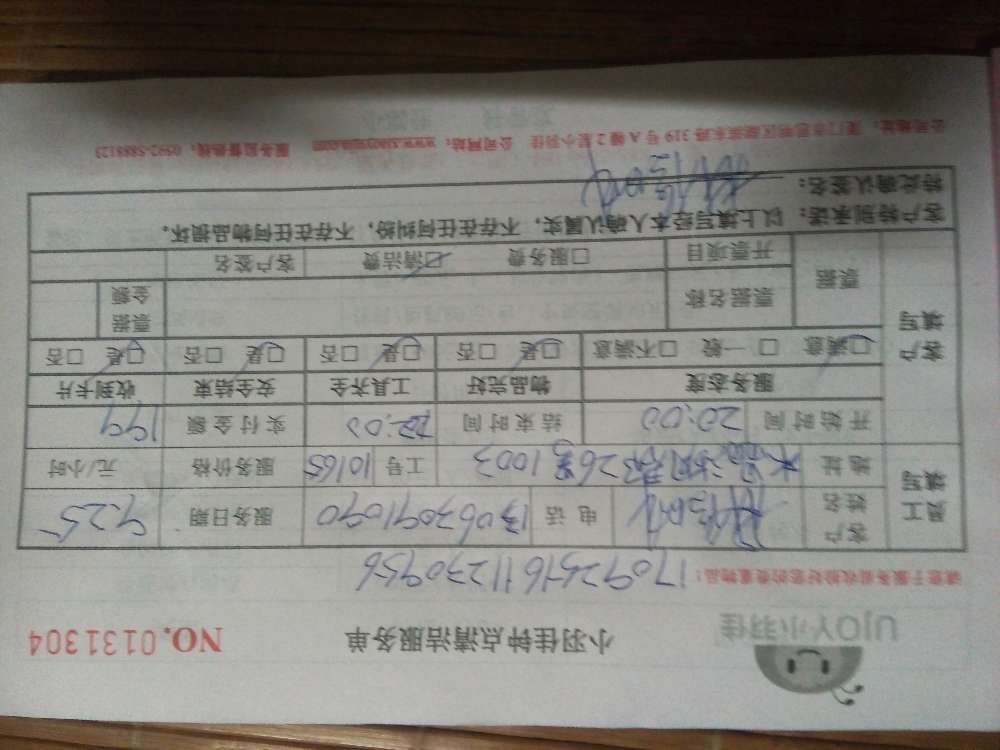 UJOY小羽佳
小羽佳钟点清洁服务单
NO.0131304
请您于服务前收捡好您的贵重物品!
员工填写
客户姓名
电话 13063091090
服务日期 9.25
地址 26号1003
工号 10165
服务价格 元/小时
开始时间 20:00
结束时间
实付金额 199
客户填写
服务态度 物品完好 工具齐全 安全结束 收到卡片
☑满意 □一般 □不满意 ☑是 □否 ☑是 □否 ☑是 □否 ☑是 □否
票据 票据名称 票据金额
开票项目 □服务费 ☑清洁费 客户签名
客户特别承诺: 以上填写经本人确认属实,不存在任何纠纷,不存在任何物品损坏。
特此确认签名:
公司地址: 厦门市思明区湖滨东路 319 号 A 幢 2 层小羽佳 公司网站: www.xiaoyujia.com 服务监督热线: 0592-5888123